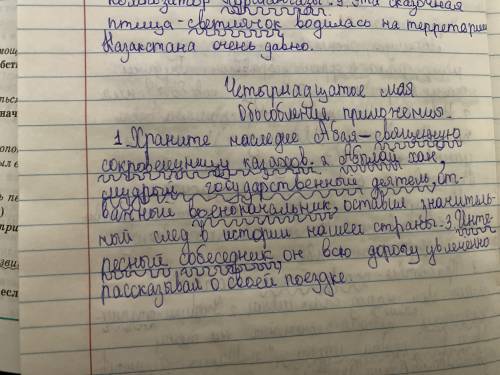 композитор Курмангазы. 3. Эта сказочная
птица-светлячок водилась на территории
Казахстана очень давно.
Четырнадцатое мая
Обособление приложения.
1. Храните наследие Абая-священную
сокровищницу казахов. 2. Абылай хан,
мудрый государственный деятель, от-
важный военоначальник, оставил значитель-
ный след в истории нашей страны. 3. Инте-
ресный собеседник, он всю дорогу увлеченно
рассказывал о своей поездке.